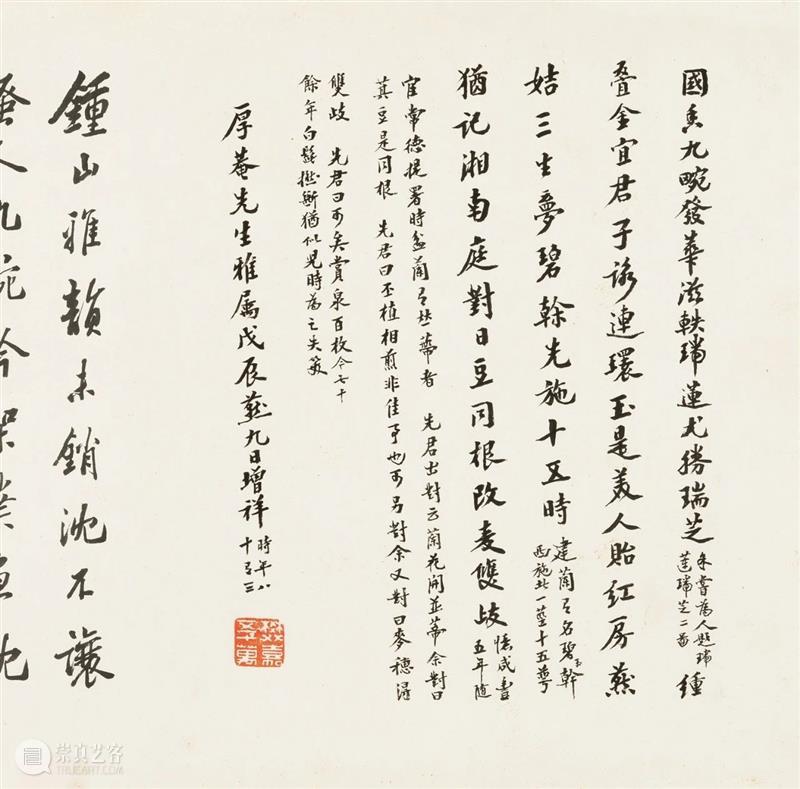 國香九畹發華滋軼瑞蓮尤勝瑞芝余嘗為人題瑞蓮瑞芝二圖種
疊金宜君子詠連環玉是美人貽紅房燕
姞三生夢碧榦先施十五時建蘭有名碧玉榦西施花一莖十五萼
猶記湘南庭對日豆同根改麥雙歧憶咸豐五年隨
宦常德提署時盆蘭有並蒂者 先君出對云蘭花開並蒂余對曰
萁豆是同根 先君曰丕植相煎非佳事也可另對余又對曰麥穗
雙歧 先君曰可矣賞泉百枚今七十
餘年白髮猶似兒時為之失笑
厚菴先生雅属戊辰燕九日增祥時年八十有三
鍾山雅韻未銷沈不讓
騷人九畹吟
崇真艺客
TRUEART.COM